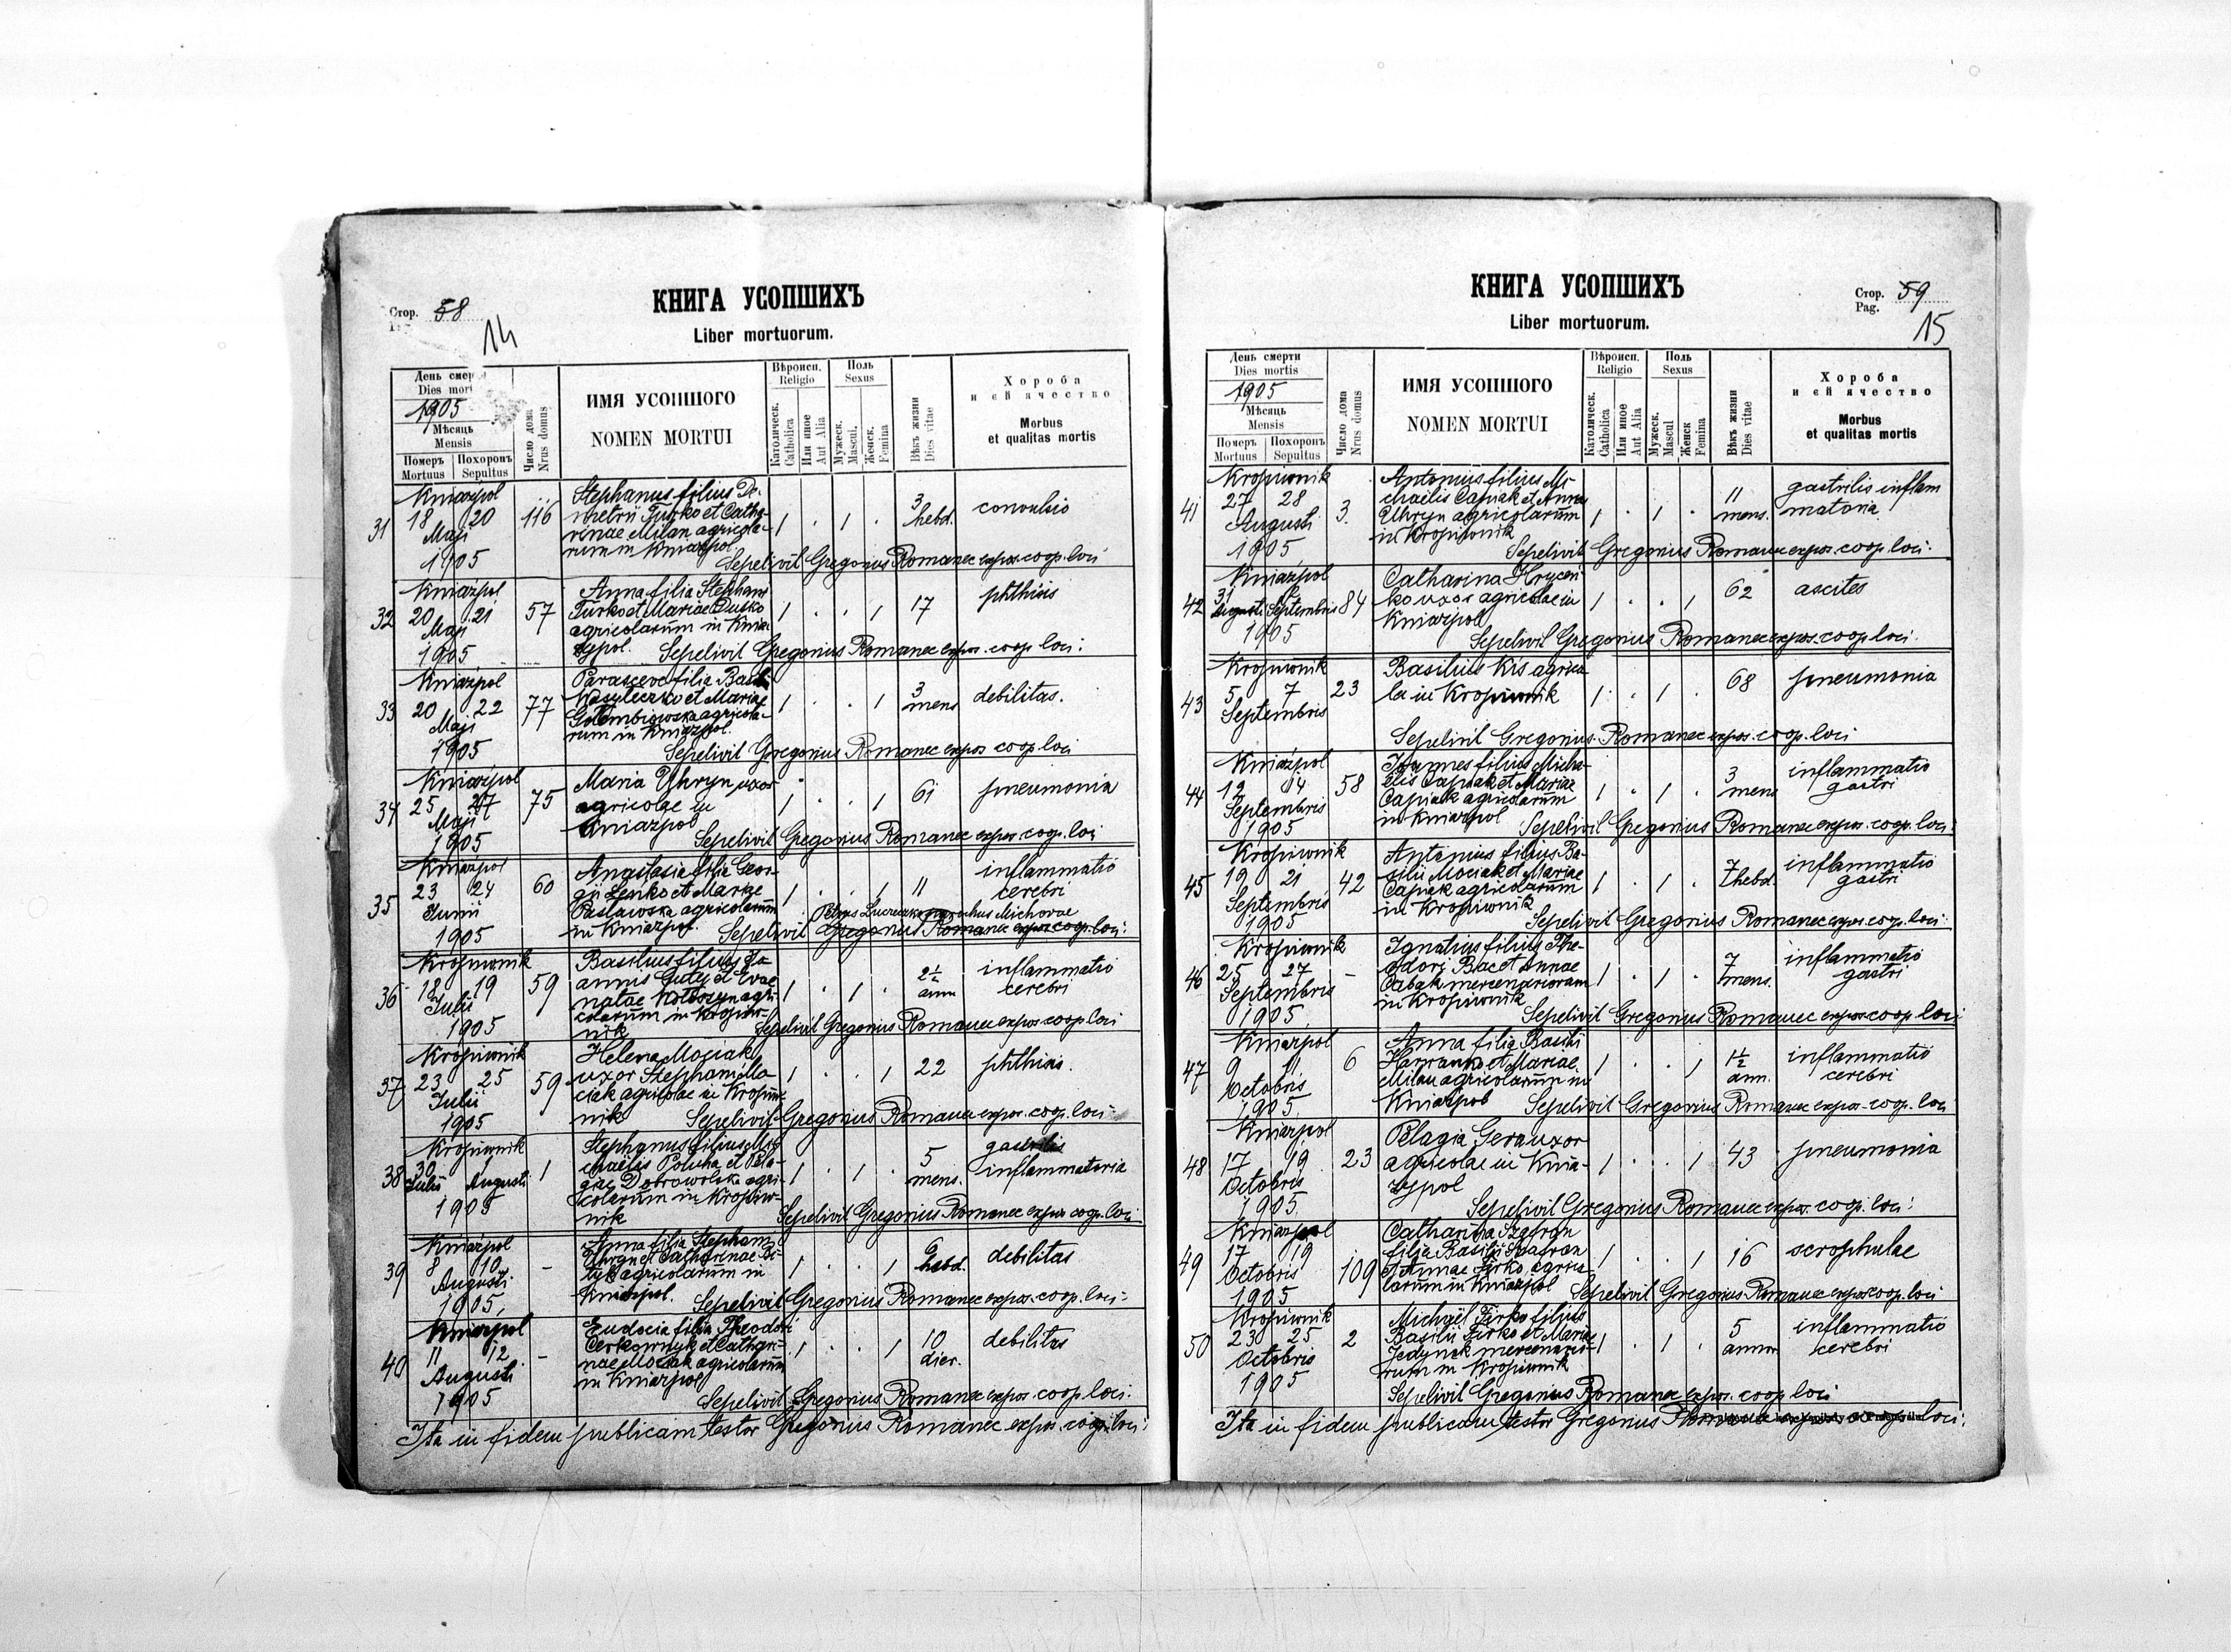 Стор. 58
14
КНИГА УСОПШИХЪ
Liber mortuorum.
День смер
Dies mort
1905
Мѣсяць
Mensis
Померъ Похоронъ
Mortuus Sepultus
Число дома
Nrus domus
ИМЯ УСОПШОГО
NOMEN MORTUI
Вѣроисп.
Religio
Католическ.
Catholica
Или иное
Aut Alia
Полъ
Sexus
Мужеск.
Mascul.
Женск.
Femina
Вѣкъ жизни
Dies vitae
Хороба
и еѣ ячество
Morbus
et qualitas mortis
31
Kniażpol
18 20
Maji
1905
116
Stephanus filius De-
metrii Turko et Catha-
rinae Milan agricola-
rum in Kniażpol
1 . 1 .
3
hebd.
convulsio
Sepelivit Gregorius Romanec expos. coop. loci
32
Kniażpol
20 21
Maji
1905
57
Anna filia Stephani
Turko et Mariae Dusko
agricolarum in Knia-
żpol.
1 . . 1
17
phthisis
Sepelivit Gregorius Romanec expos. coop. loci:
33
Kniażpol
20 22
Maji
1905
77
Parasceve filia Basilii
et Mariae
agricola-
rum in Kniażpol.
1 . . 1
3
mens
debilitas.
Sepelivit Gregorius Romanec expos coop loci
34
Kniażpol
25 27
Maji
1905
75
Maria Uhryn uxor
agricolae in
Kniażpol
1 . . 1
61
pneumonia
Sepelivit Gregorius Romanec expos. coop. loci
35
Kniażpol
23 24
Junii
1905
60
Anastasia filia Geor-
gii Zenko et Mariae
Pasławska agricolarum
in Kniażpol.
1 . . 1
11
inflammatio
cerebri
Petrus parochus Michovae
Sepelivit Gregorius Romanec expos coop. loci:
36
Kropiwnik
18 19
Julii
1905
59
Basilius filius Jo-
annis Gutej et Evae
natae agri-
colarum in Kropiw-
nik
1 . 1 .
2½
ann
inflammatio
cerebri
Sepelivit Gregorius Romanec expos coop loci
37
Kropiwnik
23 25
Julii
1905
59
Helena Mociak
uxor Stephani Mo-
ciak agricolae in Kropiw-
nik
1 . . 1
22
phthisis.
Sepelivit Gregorius Romanec expos. coop. loci:
38
Kropiwnik
30
Julii Augusti
1905
1
Stephanus filius Mi-
chaelis Poluha et Pela-
giae Dobrowolska agri-
colarum in Kropiw-
nik
1 . 1 .
5
mens.
gastritis
inflammatoria
Sepelivit Gregorius Romanec expos coop. loci
39
Kniażpol
8 10
Augusti
1905,
-
Anna filia Stephani
Uhryn et Catharinae
agricolarum in
Kniażpol.
1 . . 1
6
hebd.
debilitas
Sepelivit Gregorius Romanec expos. coop. loci:
40
Kniażpol
11 12
Augusti
1905
-
Eudocia filia Theodori
et Cathari-
nae Mociak agricolarum
in Kniażpol
1 . . 1
10
dier.
debilitas
Sepelivit Gregorius Romanec expos. coop loci:
Ita in fidem publicam testor Gregorius Romanec expos. coop. loci:
КНИГА УСОПШИХЪ
Liber mortuorum.
Стор. 59
Pag.
15
День смерти
Dies mortis
1905
Мѣсяць
Mensis
Померъ Похоронъ
Mortuus Sepultus
Число дома
Nrus domus
ИМЯ УСОПШОГО
NOMEN MORTUI
Вѣроисп.
Religio
Католическ.
Catholica
Или иное
Aut Alia
Полъ
Sexus
Мужеск.
Mascul
Женск
Femina
Вѣкъ жизни
Dies vitae
Хороба
и еѣ ячество
Morbus
et qualitas mortis
41
Kropiwnik
27 28
Augusti
1905
3.
Antonius filius Mi-
chaelis Capiak et Annae
Uhryn agricolarum
in Kropiwnik
1 . 1 .
11
mens.
gastritis inflam
matoria
Sepelivit Gregorius Romanec expos. coop loci:
42
Kniażpol
31
Augusti Septembris
1905
84
Catharina Hrycen
ko uxor agricolae in
Kniażpol
1 . . 1
62
ascites
Sepelivit Gregorius Romanec expos. coop loci:
43
Kropiwnik
5 7
Septembris
23
Basilius Kis agrico
la in Kropiwnik
1 . 1 .
68
pneumonia
Sepelivit Gregorius Romanec expos. coop. loci
44
Kniażpol
12 14
Septembris
1905
58
Joannes filius Micha-
elis Capiak et Mariae
Capiak agricolarum
in Kniażpol
1 . 1 .
3
mens
inflammatio
gastri
Sepelivit Gregorius Romanec expos. coop. loci:
45
Kropiwnik
19 21
Septembris
1905
42
Antonius filius Ba-
silii Mociak et Mariae
Capiak agricolarum
in Kropiwnik
1 . 1 .
7 hebd.
inflammatio
gastri
Sepelivit Gregorius Romanec expos. coop. loci:
46
Kropiwnik
25 27
Septembris
1905
-
Ignatius filius The-
odori Bac et Annae
Cabak mercenariorum
in Kropiwnik
1 . 1 .
7
mens.
inflammatio
gastri
Sepelivit Gregorius Romanec expos coop loci
47
Kniażpol
9 11
Octobris
1905.
6
Anna filia Basilii
et Mariae
Milan agricolarum in
Kniażpol
1 . . 1
1½
ann.
inflammatio
cerebri
Sepelivit Gregorius Romanec expos. coop. loci
48
Kniażpol
17 19
Octobris
1905.
23
Pelagia Gera uxor
agricolae in Knia-
żypol
1 . . 1
43
pneumonia
Sepelivit Gregorius Romanec expos. coop. loci:
49
Kniażpol
17 19
Octobris
1905
109
Catharina Szafran
filia Basilii Szafran
et Annae Firko agrico
larum in Kniażpol
1 . . 1
16
scrophulae
Sepelivit Gregorius Romanec expos coop. loci
50
Kropiwnik
23 25
Octobris
1905
2
Michael Firko filius
Basilii Firko et Mariae
Jedynak mercenario-
rum in Kropiwnik
1 . 1 .
5
annor
inflammatio
cerebri
Sepelivit Gregorius Romanec expos. coop loci
Ita in fidem publicam testor Gregorius Romanec expos. coop. loci: